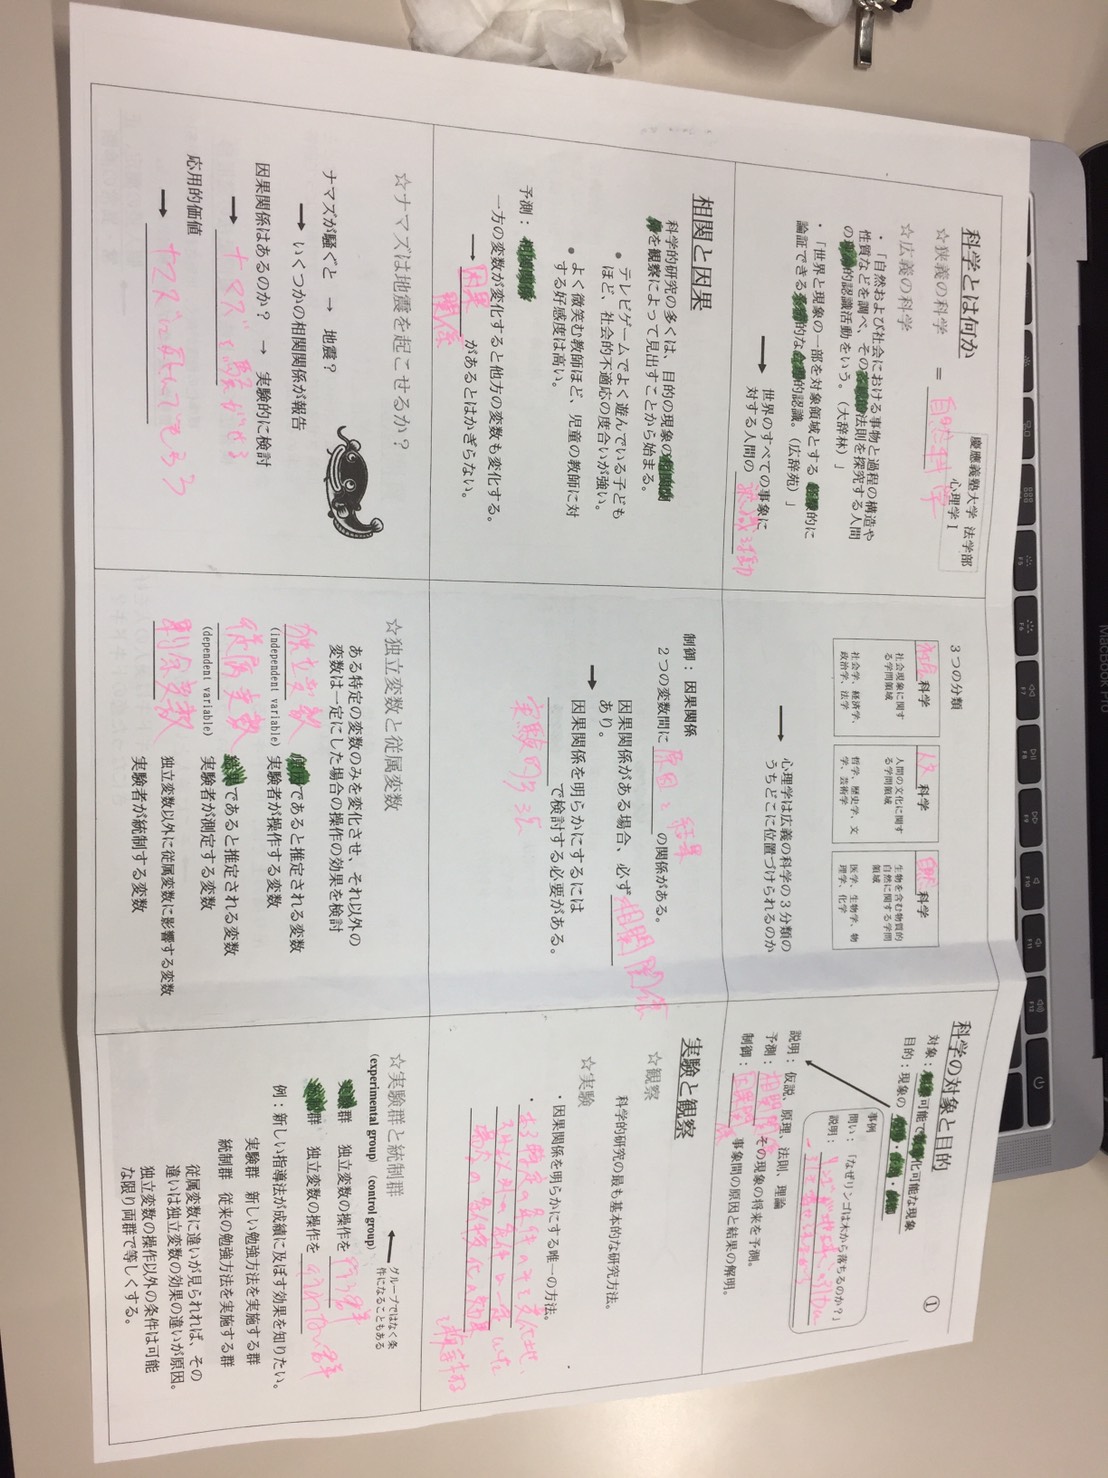 慶應義塾大学 法学部
心理学Ⅰ
科学とは何か
☆狭義の科学 = 自然科学
☆広義の科学
・「自然および社会における事物と過程の構造や
性質などを調べ、その法則を探究する人間
の的認識活動をいう。(大辞林)」
・「世界と現象の一部を対象領域とする 的に
論証できる的な的認識。(広辞苑)」
→ 世界のすべての事象に
対する人間の 認識活動
3つの分類
社会科学
社会現象に関す
る学問領域
社会学、経済学、
政治学、法学
人文科学
人間の文化に関す
る学問領域
哲学、歴史学、文
学、芸術学
自然科学
生物を含む物質的
自然に関する学問
領域
医学、生物学、物
理学、化学
→ 心理学は広義の科学の3分類の
うちどこに位置づけられるのか
①
科学の対象と目的
対象:可能で化可能な現象
目的:現象の ・・
事例
問い:(なぜリンゴは木から落ちるのか?)
説明:
説明: 仮説、原理、法則、理論
予測: 相関関係 その現象の将来を予測。
制御: 因果関係 事象間の原因と結果の解明。
相関と因果
科学的研究の多くは、目的の現象の
を観察によって見出すことから始まる。
● テレビゲームでよく遊んでいる子ども
ほど、社会的不適応の度合いが強い。
● よく微笑む教師ほど、児童の教師に対
する好感度は高い。
予測:
一方の変数が変化すると他方の変数も変化する。
→ 因果関係 があるとはかぎらない。
制御: 因果関係
2つの変数間に 原因と結果 の関係がある。
因果関係がある場合、必ず 相関関係
あり。
→ 因果関係を明らかにするには
実験的方法 で検討する必要がある。
実験と観察
☆観察
科学的研究の最も基本的な研究方法。
☆実験
・因果関係を明らかにする唯一の方法。
・ある特定の条件のみを変化させ、
それ以外の条件を一定にした
場合の条件変化の効果
を検討する
☆ナマズは地震を起こせるか?
ナマズが騒ぐと → 地震?
→ いくつかの相関関係が報告
因果関係はあるのか? → 実験的に検討
→ ナマズを騒がせる
応用的価値
→ ナマズに騒いでもらう
☆独立変数と従属変数
ある特定の変数のみを変化させ、それ以外の
変数は一定にした場合の操作の効果を検討
独立変数 であると推定される変数
(independent variable) 実験者が操作する変数
従属変数 であると推定される変数
(dependent variable) 実験者が測定する変数
剰余変数 独立変数以外に従属変数に影響する変数
実験者が統制する変数
☆実験群と統制群
(experimental group) (control group)
← グループではなく条
件になることもある
群 独立変数の操作を 行う群
群 独立変数の操作を 行わない群
例:新しい指導法が成績に及ぼす効果を知りたい。
実験群 新しい勉強方法を実施する群
統制群 従来の勉強方法を実施する群
従属変数に違いが見られれば、その
違いは独立変数の効果の違いが原因。
独立変数の操作以外の条件は可能
な限り両群で等しくする。
MacBook Pro